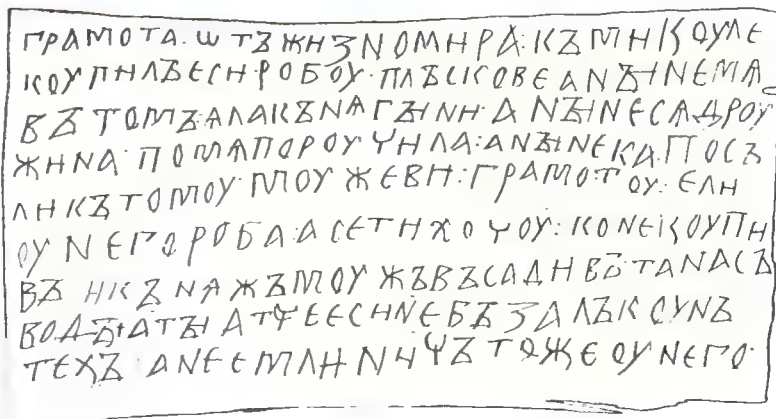 грамота · ѡтъ жизномира · къ микоуле
коупилъ еси · робоу · плъскове а ныне мѧ
въ томъ · ѧла кънѧгыни · а ныне сѧ дроу
жина · по мѧ пороучила : а ныне ка · посъ
ли къ томоу · моужеви : грамотоу · ели
оу него роба · а се ти хочоу : коне коупи
въ и кънѧжъ моужъ въсади въ та на съ
водъı а ты атче еси не възалъ коунъ
техъ · а не емли ничъто же оу него ·